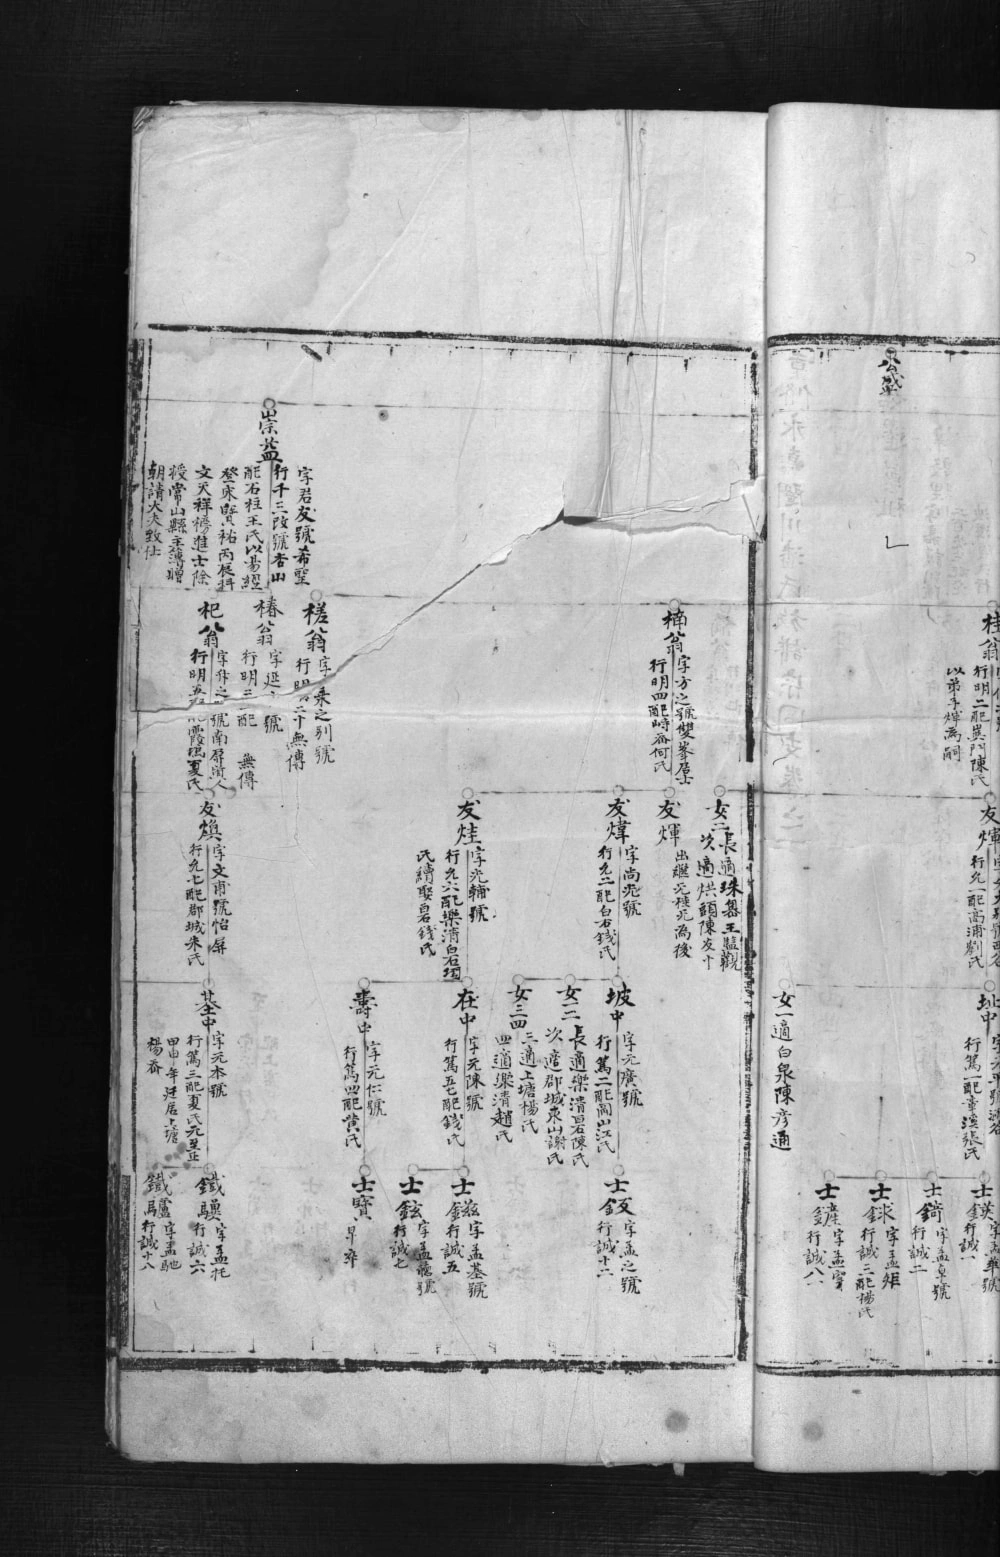 桂翁
行明二配巽門陳氏
以弟子煇為嗣
友煇
行允一配高浦劉氏
址中
行篤一配章溪張氏
女一適白泉陳彥通
士鍈
行誠一
士錡
字孟卓號
行誠二
士銶
字孟矩
行誠三配楊氏
士鏟
字孟實
行誠八
楠翁
字方之號雙峯居士
行明四配時齋何氏
女二
長適珠嶴王監觀
次適烘頭陳友十
友煇
出繼兄桂元為後
友煒
字尚光號
行允二配白石錢氏
友炷
字光輔號
行允六配樂清白石項
氏續娶白石錢氏
坡中
字元廣號
行篤二配高山江氏
女二
長適樂清白石陳氏
次適郡城泉山謝氏
女三四
三適上塘楊氏
四適樂清趙氏
在中
字元陳號
行篤五配錢氏
壽中
字元仁號
行篤四配黃氏
士鈑
字孟之號
行誠十二
士鎡
字孟基號
行誠五
士鉉
行誠七
士寶
早卒
崇葢
字君友號希聖
行千三改號杏山
配石柱王氏以易經
登宋寶祐丙辰科
文天祥榜進士除
授常山縣主簿贈
朝請大夫致仕
槎翁
字乘之別號
無傳
椿翁
行明三配
無傳
杞翁
字升之號南屏散人
友煥
字文甫號怡屏
行允七配郡城朱氏
基中
字元本號
行篤三配夏氏元至正
甲申年迁居上塘
楊岙
鐵驥
字孟托
行誠六
鐵驢
字孟馳
行誠十八